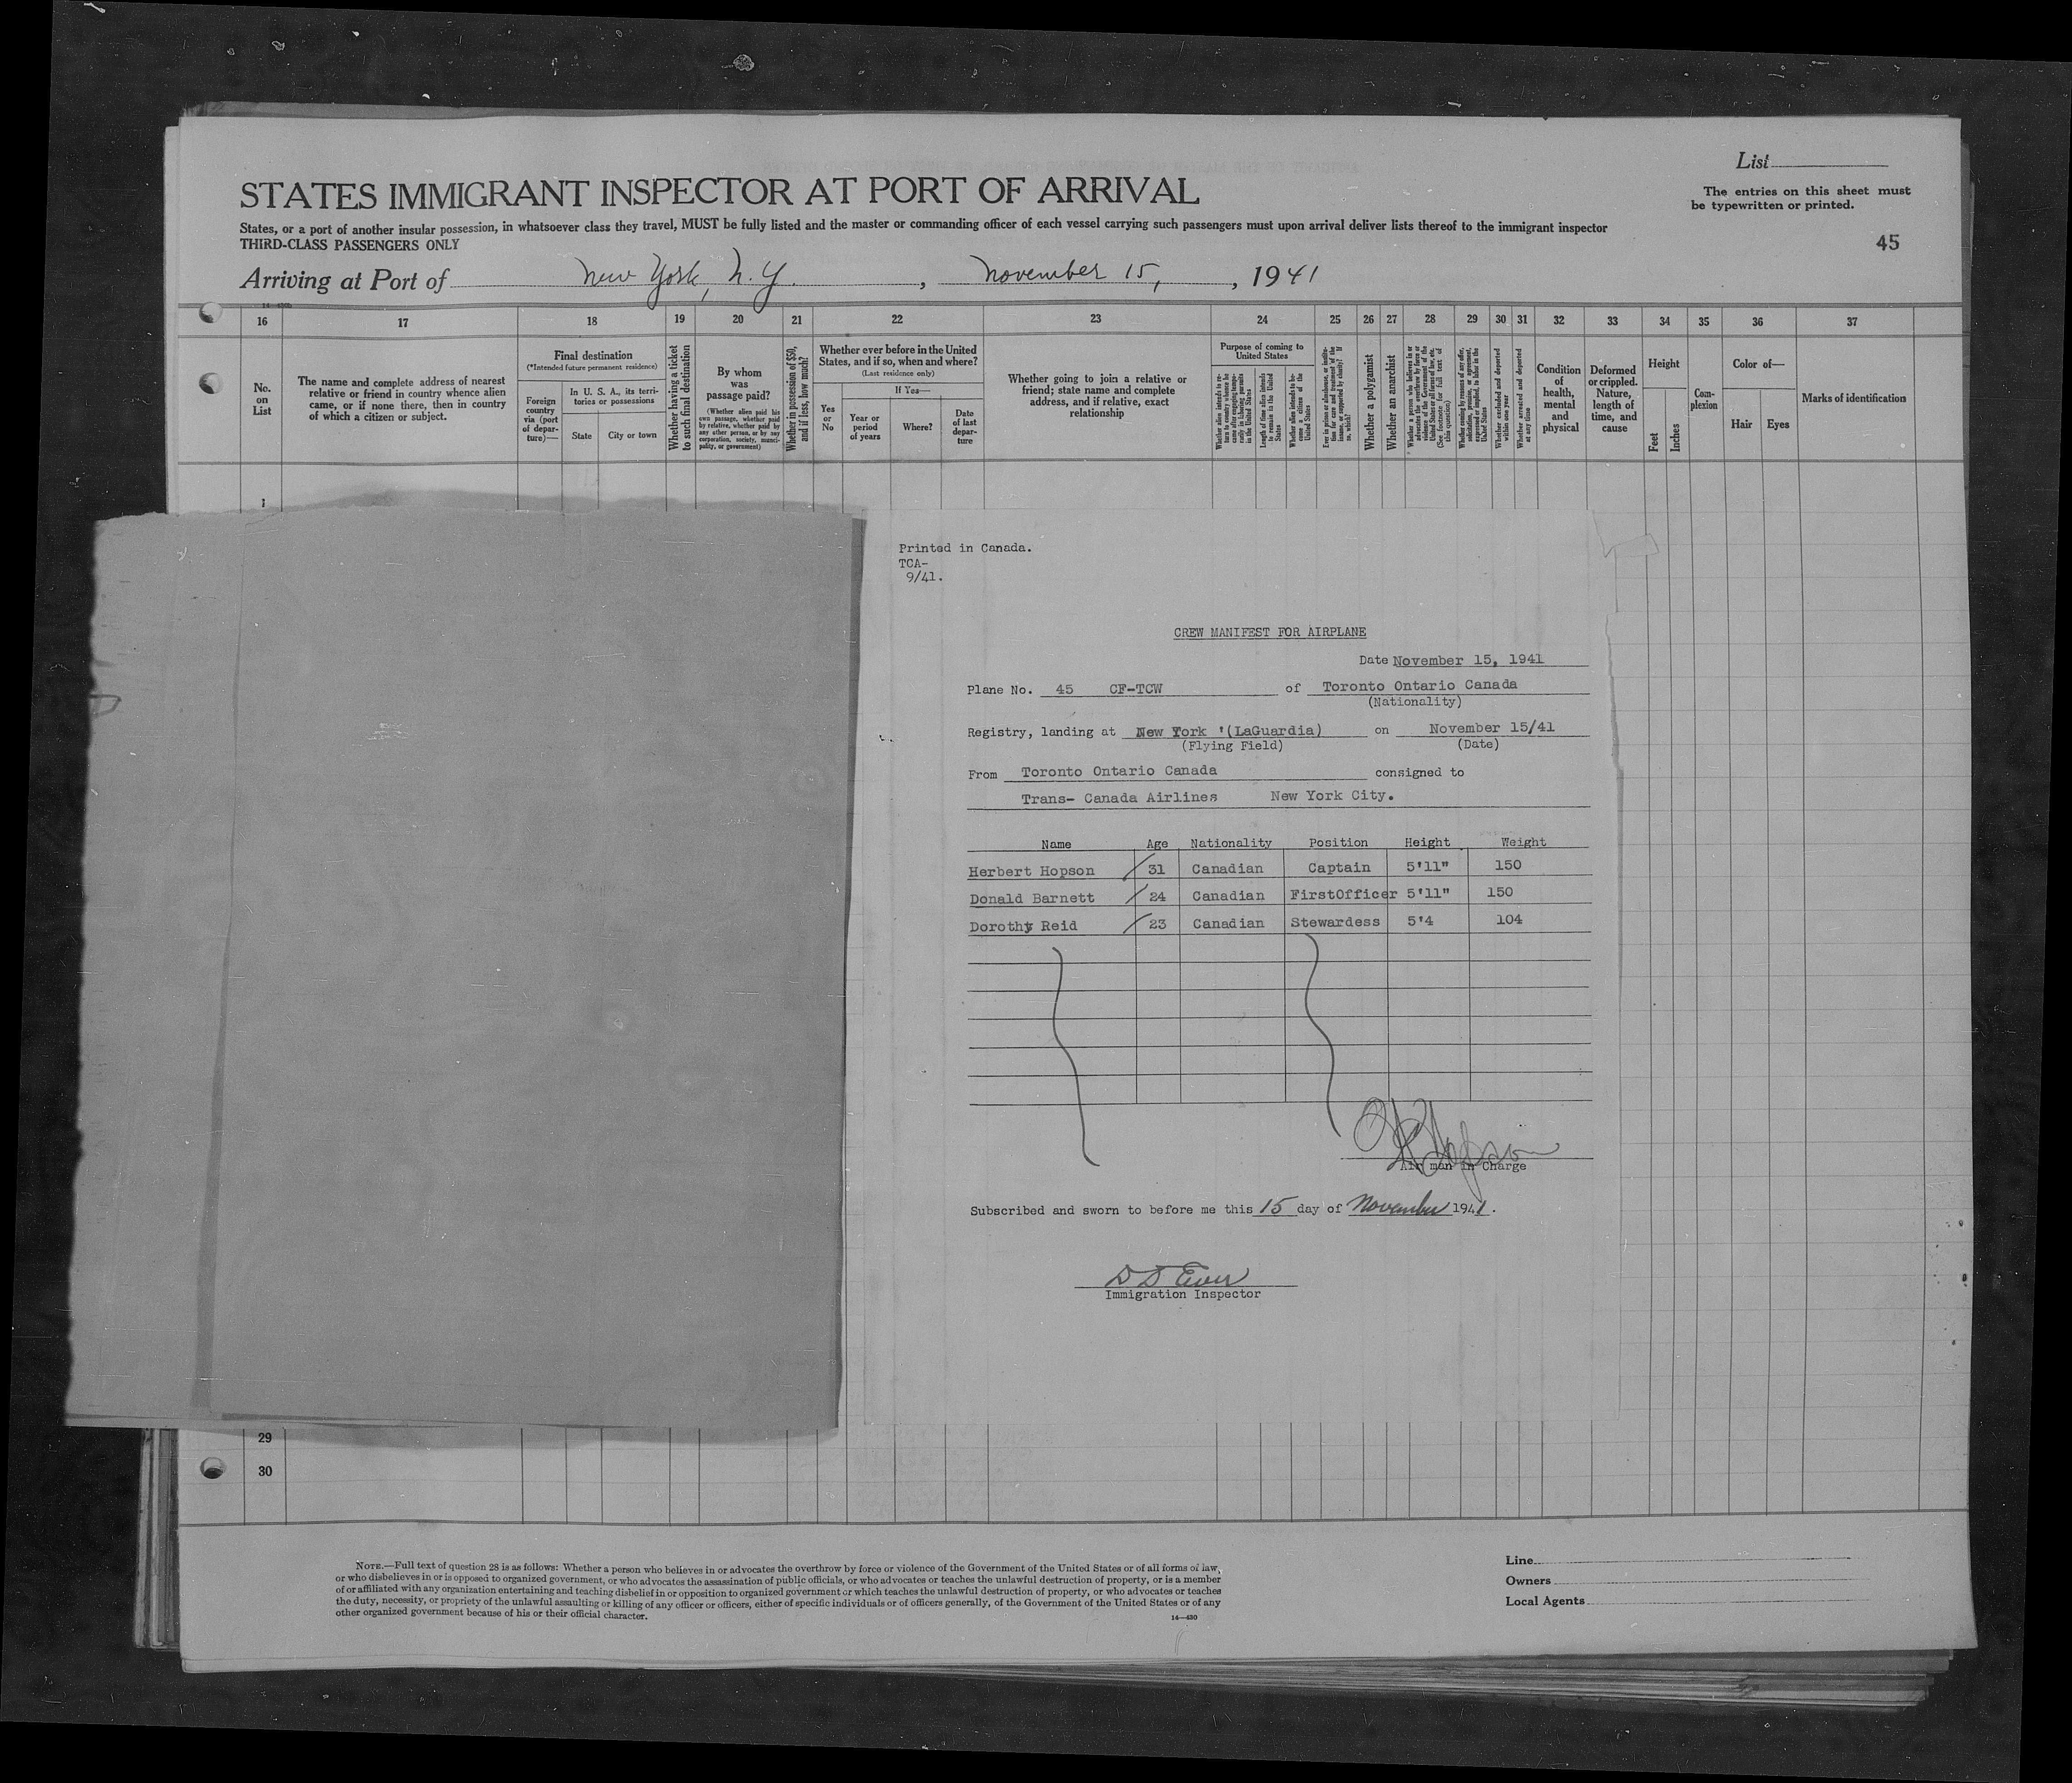 List
The entries on this sheet must
be typewritten or printed.
STATES IMMIGRANT INSPECTOR AT PORT OF ARRIVAL
States, or a port of another insular possession, in whatsoever class they travel, MUST be fully listed and the master or commanding officer of each vessel carrying such passengers must upon arrival deliver lists thereof to the immigrant inspector
THIRD-CLASS PASSENGERS ONLY
45
Arriving at Port of New York, N.Y. , November 15, , 1941
16 17 18 19 20 21 22 23 24 25 26 27 28 29 30 31 32 33 34 35 36 37
No.
on
List
The name and complete address of nearest
relative or friend in country whence alien
came, or if none there, then in country
of which a citizen or subject.
Final destination
(*Intended future permanent residence)
Foreign
country
via (port
of depar-
ture)—
In U. S. A., its terri-
tories or possessions
State
City or town
Whether having a ticket
to such final destination
By whom
was
passage paid?
(Whether alien paid his
own passage, whether paid
by relative, whether paid by
any other person, or by any
corporation, society, munici-
pality, or government)
Whether in possession of $50,
and if less, how much?
Whether ever before in the United
States, and if so, when and where?
(Last residence only)
Yes
or
No
If Yes—
Year or
period
of years
Where?
Date
of last
depar-
ture
Whether going to join a relative or
friend; state name and complete
address, and if relative, exact
relationship
Purpose of coming to
United States
Whether alien intends to re-
turn to country whence he
came after engaging tempo-
rarily in laboring pursuits
in the United States
Length of time alien intends
to remain in the United
States
Whether alien intends to be-
come a citizen of the
United States
Ever in prison or almshouse, or institu-
tion for care and treatment of the
insane, or supported by charity? If
so, which?
Whether a polygamist
Whether an anarchist
Whether a person who believes in or
advocates the overthrow by force or
violence of the Government of the
United States or all forms of law, etc.
(See footnote for full text of
this question)
Whether coming by reasons of any offer,
solicitation, promise, or agreement,
expressed or implied, to labor in the
United States
Whether excluded and deported
within one year
Whether arrested and deported
at any time
Condition
of
health,
mental
and
physical
Deformed
or crippled.
Nature,
length of
time, and
cause
Height
Feet
Inches
Com-
plexion
Color of—
Hair
Eyes
Marks of identification
1
Printed in Canada.
TCA-
9/41.
CREW MANIFEST FOR AIRPLANE
Date November 15, 1941
Plane No. 45 CF-TCW of Toronto Ontario Canada
(Nationality)
Registry, landing at New York '(LaGuardia) on November 15/41
(Flying Field) (Date)
From Toronto Ontario Canada consigned to
Trans- Canada Airlines New York City.
Name Age Nationality Position Height Weight
Herbert Hopson 31 Canadian Captain 5'11" 150
Donald Barnett 24 Canadian FirstOfficer 5'11" 150
Dorothy Reid 23 Canadian Stewardess 5'4 104
Hopson
Air man in Charge
Subscribed and sworn to before me this 15 day of November 1941.
Immigration Inspector
29
30
NOTE.—Full text of question 28 is as follows: Whether a person who believes in or advocates the overthrow by force or violence of the Government of the United States or of all forms of law,
or who disbelieves in or is opposed to organized government, or who advocates the assassination of public officials, or who advocates or teaches the unlawful destruction of property, or is a member
of or affiliated with any organization entertaining and teaching disbelief in or opposition to organized government or which teaches the unlawful destruction of property, or who advocates or teaches
the duty, necessity, or propriety of the unlawful assaulting or killing of any officer or officers, either of specific individuals or of officers generally, of the Government of the United States or of any
other organized government because of his or their official character.
14—430
Line
Owners
Local Agents